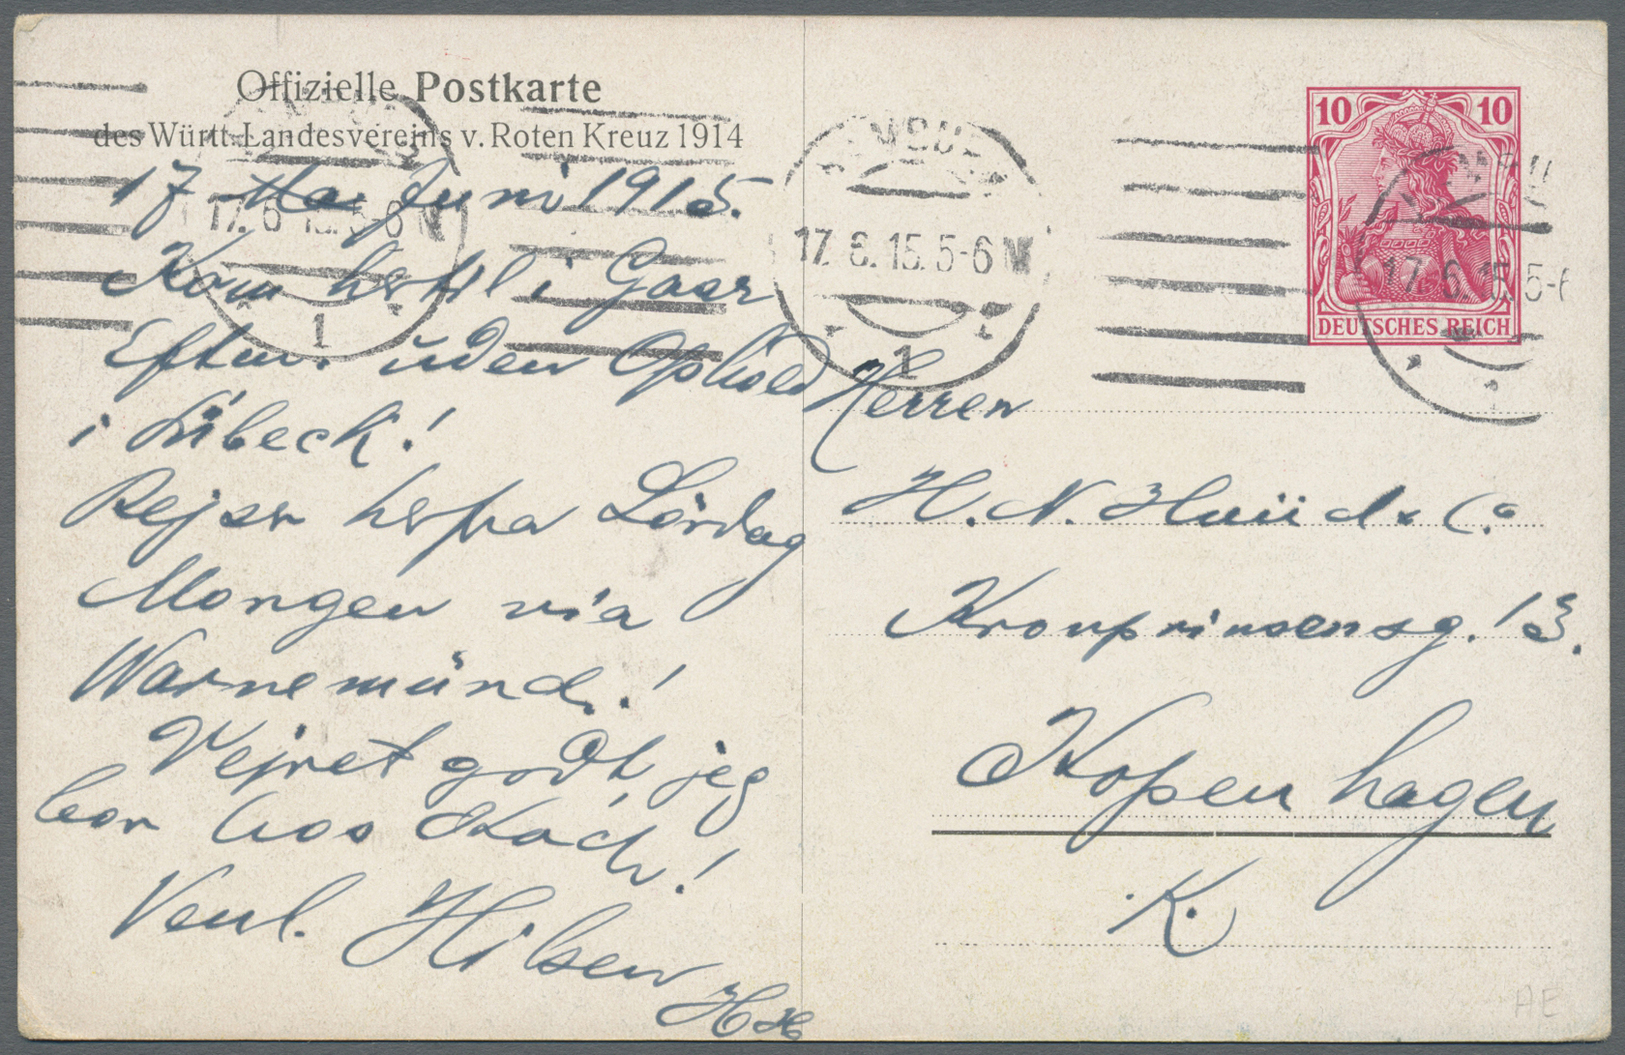 Offizielle Postkarte
des Württ. Landesvereins v. Roten Kreuz 1914
17 Juni 1915.
Kom hertil i Gaar
Efterm. uden Ophold
i Lübeck!
Rejser herfra Lördag
Morgen via
Warnemünde!
Vejret godt, jeg
bor hos Koch!
Venl. Hilsen
HH
10 10
DEUTSCHES REICH
17. 6. 15. 5-6 N
1
17. 6. 15. 5-6 N
1
17. 6. 15. 5-6
1
Herren
H. N. & Co
Kronprinsensg. 13.
Kopenhagen
K.
AE